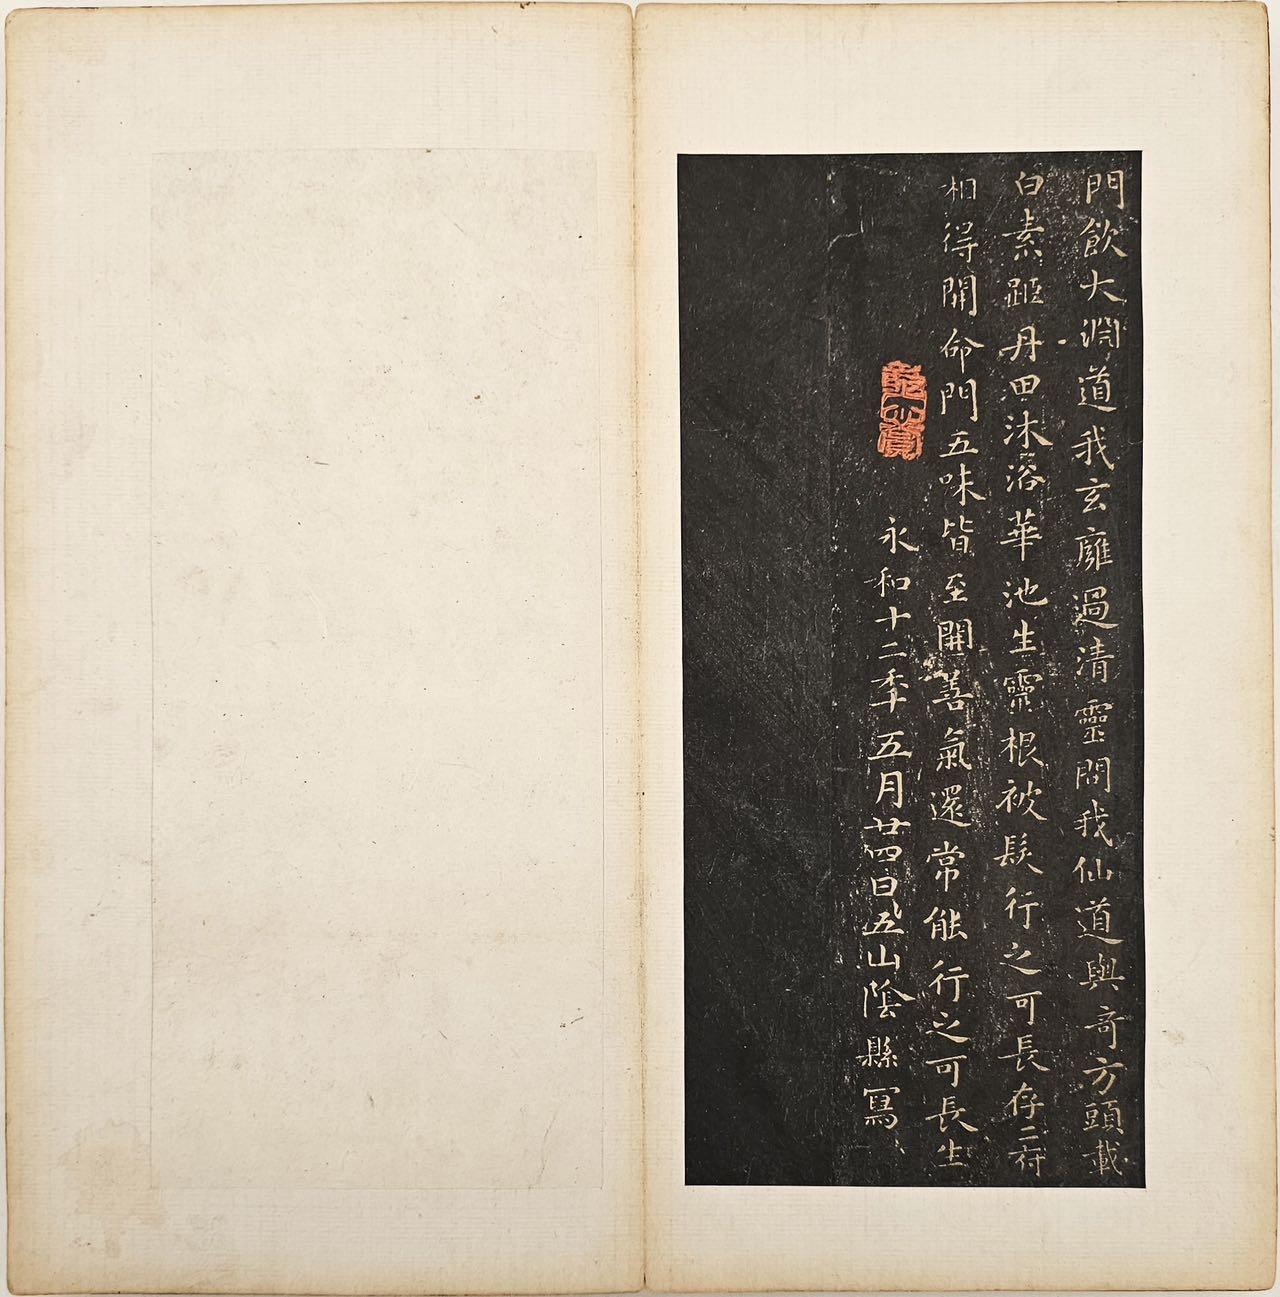 門飲大淵道我玄廱過清靈問我仙道與奇方頭載
白素距丹田沐浴華池生靈根被髮行之可長存二府
相得開命門五味皆至開善氣還常能行之可長生
永和十二秊五月廿四日五山陰縣寫